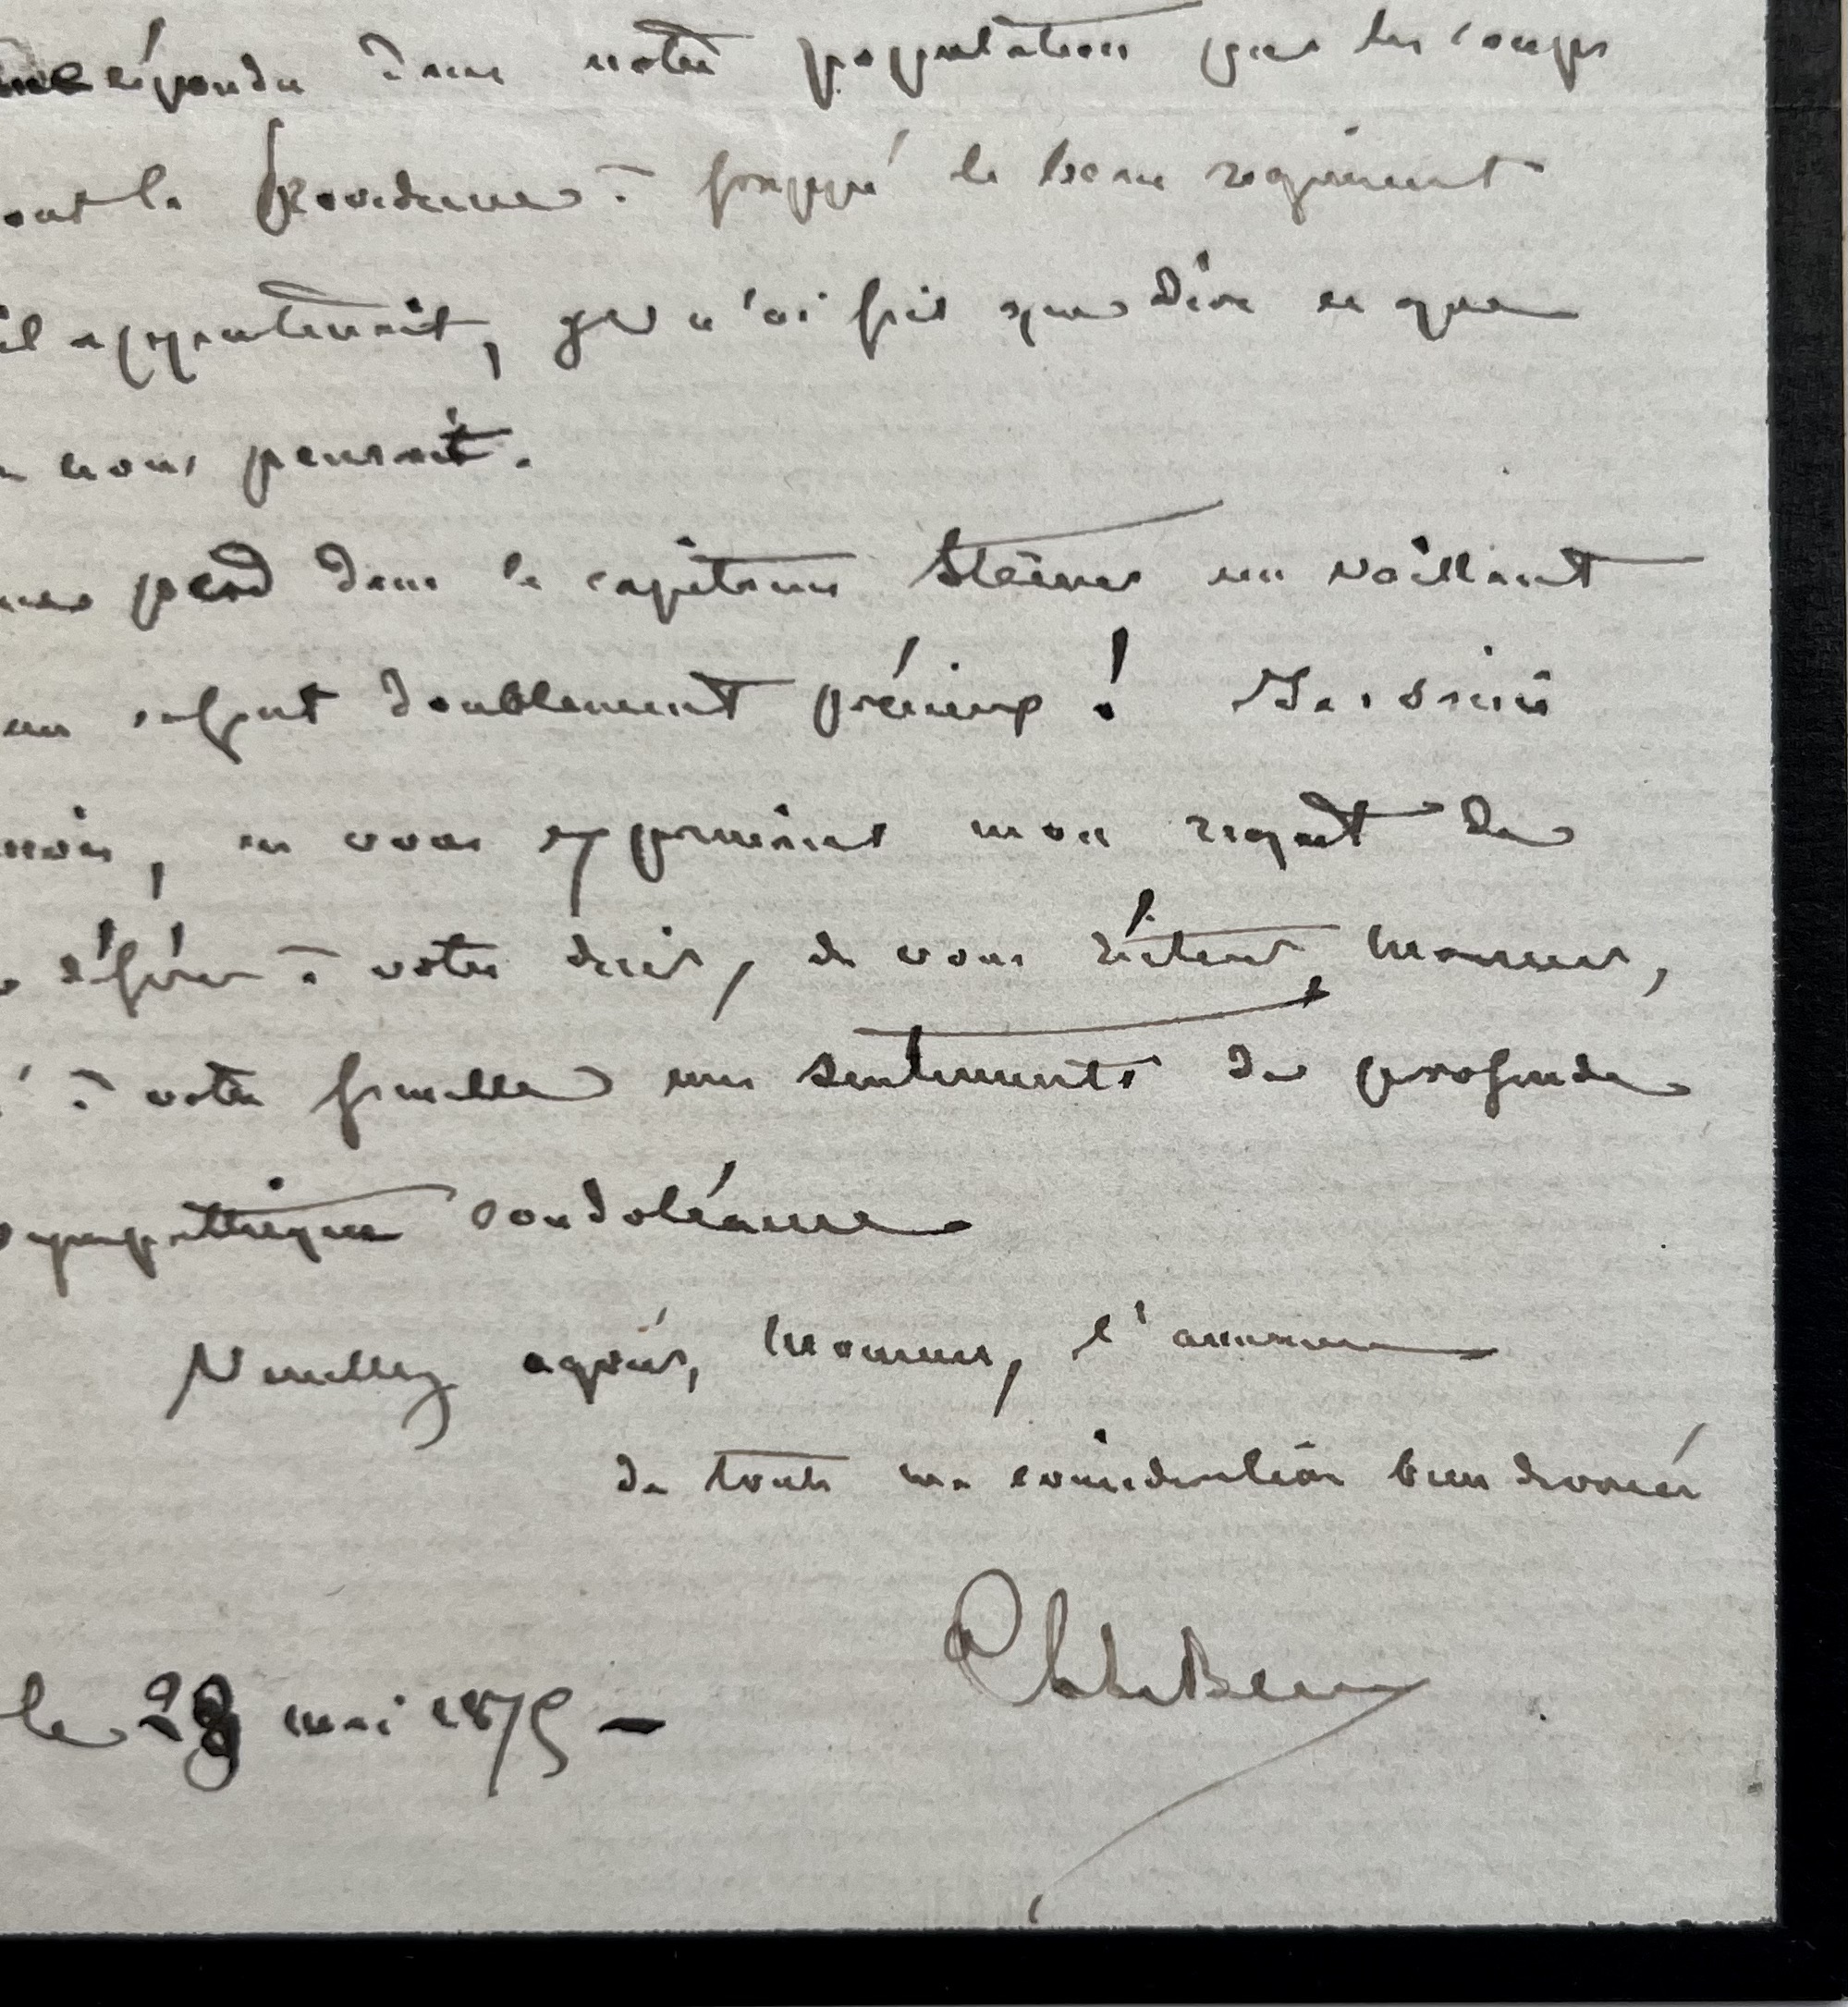 répandu dans notre population par les coups
dont la Providence a frappé le beau régiment
il appartenait, je n'ai fait que dire ce que
nous pensait.
perd dans le capitaine Steiner un vaillant
un enfant doublement précieux ! Il a
moi, en vous exprimant mon regret de
déférer à votre désir, de vous réitérer, Monsieur,
à votre famille mes sentiments de profonde
sympathique condoléance
Veuillez agréer, Monsieur, l'assurance
de toute ma considération bien dévouée
le 28 mai 1875 -